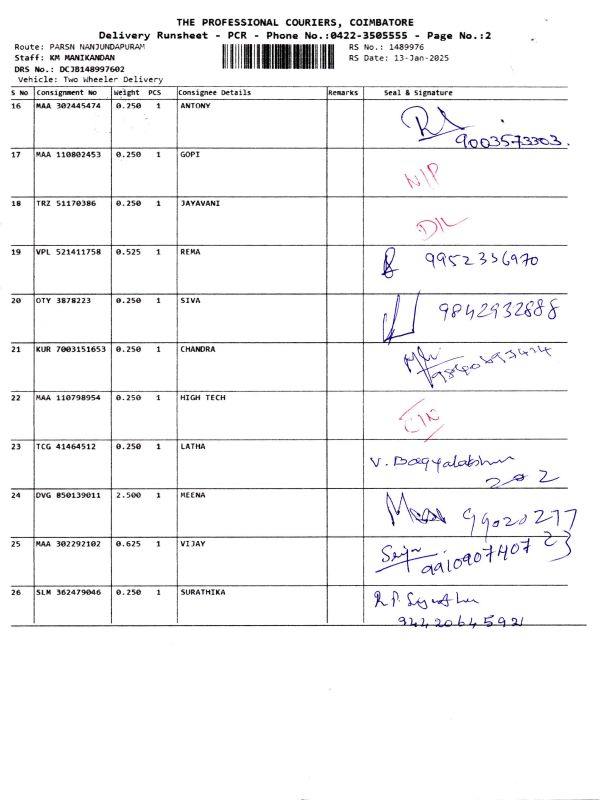 THE PROFESSIONAL COURIERS, COIMBATORE
Delivery Runsheet - PCR - Phone No.:0422-3505555 - Page No.:2
Route: PARSN NANJUNDAPURAM RS No.: 1489976
Staff: KM MANIKANDAN RS Date: 13-Jan-2025
DRS No.: DCJB148997602
Vehicle: Two Wheeler Delivery
S No Consignment No Weight PCS Consignee Details Remarks Seal & Signature
16 MAA 302445474 0.250 1 ANTONY
9003573303.
17 MAA 110802453 0.250 1 GOPI
N/P
18 TRZ 51170386 0.250 1 JAYAVANI
19 VPL 521411758 0.525 1 REMA
9952336970
20 OTY 3878223 0.250 1 SIVA
9842932888
21 KUR 7003151653 0.250 1 CHANDRA
22 MAA 110798954 0.250 1 HIGH TECH
23 TCG 41464512 0.250 1 LATHA
V. Bagyalakshmi
202
24 DVG 850139011 2.500 1 MEENA
99020277
23
25 MAA 302292102 0.625 1 VIJAY
9910907407
26 SLM 362479046 0.250 1 SURATHIKA
9442064592